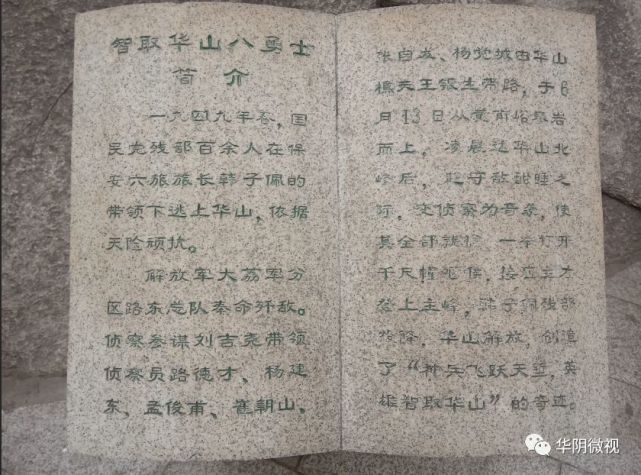 智取华山八勇士
简介
一九四九年春，国
民党残部百余人在保
安六旅旅长韩子佩的
带领下逃上华山，依据
天险顽抗。
解放军大荔军分
区路东总队奉命歼敌。
侦察参谋刘吉尧带领
侦察员路德才、杨建
东、孟俊甫、崔朝山、
张自发、杨党城由华山
樵夫王银生带路，于6
月13日从黄甫峪攀岩
而上，凌晨达华山北
峰后，趁守敌酣睡之
际，变侦察为奇袭，使
其全部就擒，一举打开
千尺幢
登上主峰，韩子佩残部
投降，华山解放，创造
了“神兵飞跃天堑，英
雄智取华山”的奇迹。
华阴微视